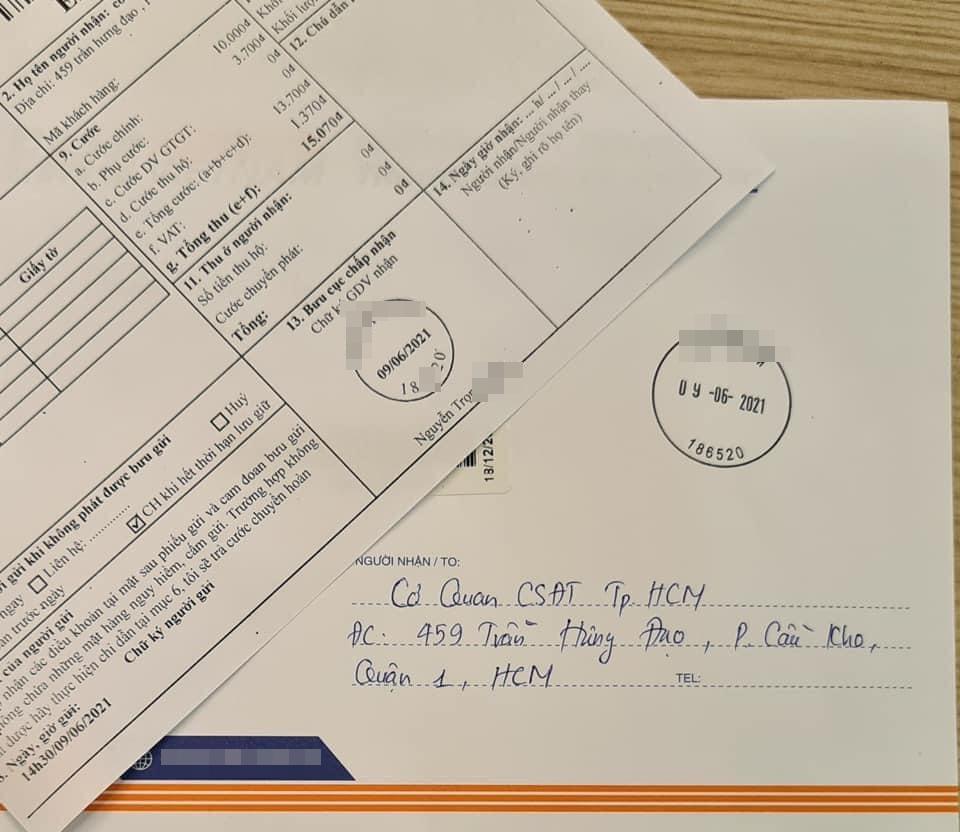 2. Họ tên người nhận:
Địa chỉ: 459 trần hưng đạo ,
Mã khách hàng:
9. Cước
a. Cước chính: 10.000đ
b. Phụ cước: 3.700đ
c. Cước DV GTGT: 0đ
d. Cước thu hộ: 0đ
e. Tổng cước: (a+b+c+d): 13.700đ
f. VAT: 1.370đ
g. Tổng thu (e+f): 15.070đ
11. Thu ở người nhận:
Số tiền thu hộ: 0đ
Cước chuyển phát: 0đ
Tổng: 0đ
12. Chú dẫn
13. Bưu cục chấp nhận
Chữ GDV nhận
09/06/2021
Nguyễn
14. Ngày giờ nhận: ... h/ ... / ... / ....
Người nhận/Người nhận thay
(Ký, ghi rõ họ tên)
Giấy tờ
gửi khi không phát được bưu gửi
ngay Liên hệ: ............ Huỷ
trước ngày CH khi hết thời hạn lưu giữ
của người gửi
nhận các điều khoản tại mặt sau phiếu gửi và cam đoan bưu gửi
chứa những mặt hàng nguy hiểm, cấm gửi. Trường hợp không
được hãy thực hiện chỉ dẫn tại mục 6, tôi sẽ trả cước chuyển hoàn
Chữ ký người gửi
Ngày, giờ gửi:
14h30/09/06/2021
09-06-2021
186520
NGƯỜI NHẬN / TO:
Cơ Quan CSĐT Tp HCM
ĐC: 459 Trần Hưng Đạo, P. Cầu Kho,
Quận 1, HCM TEL: